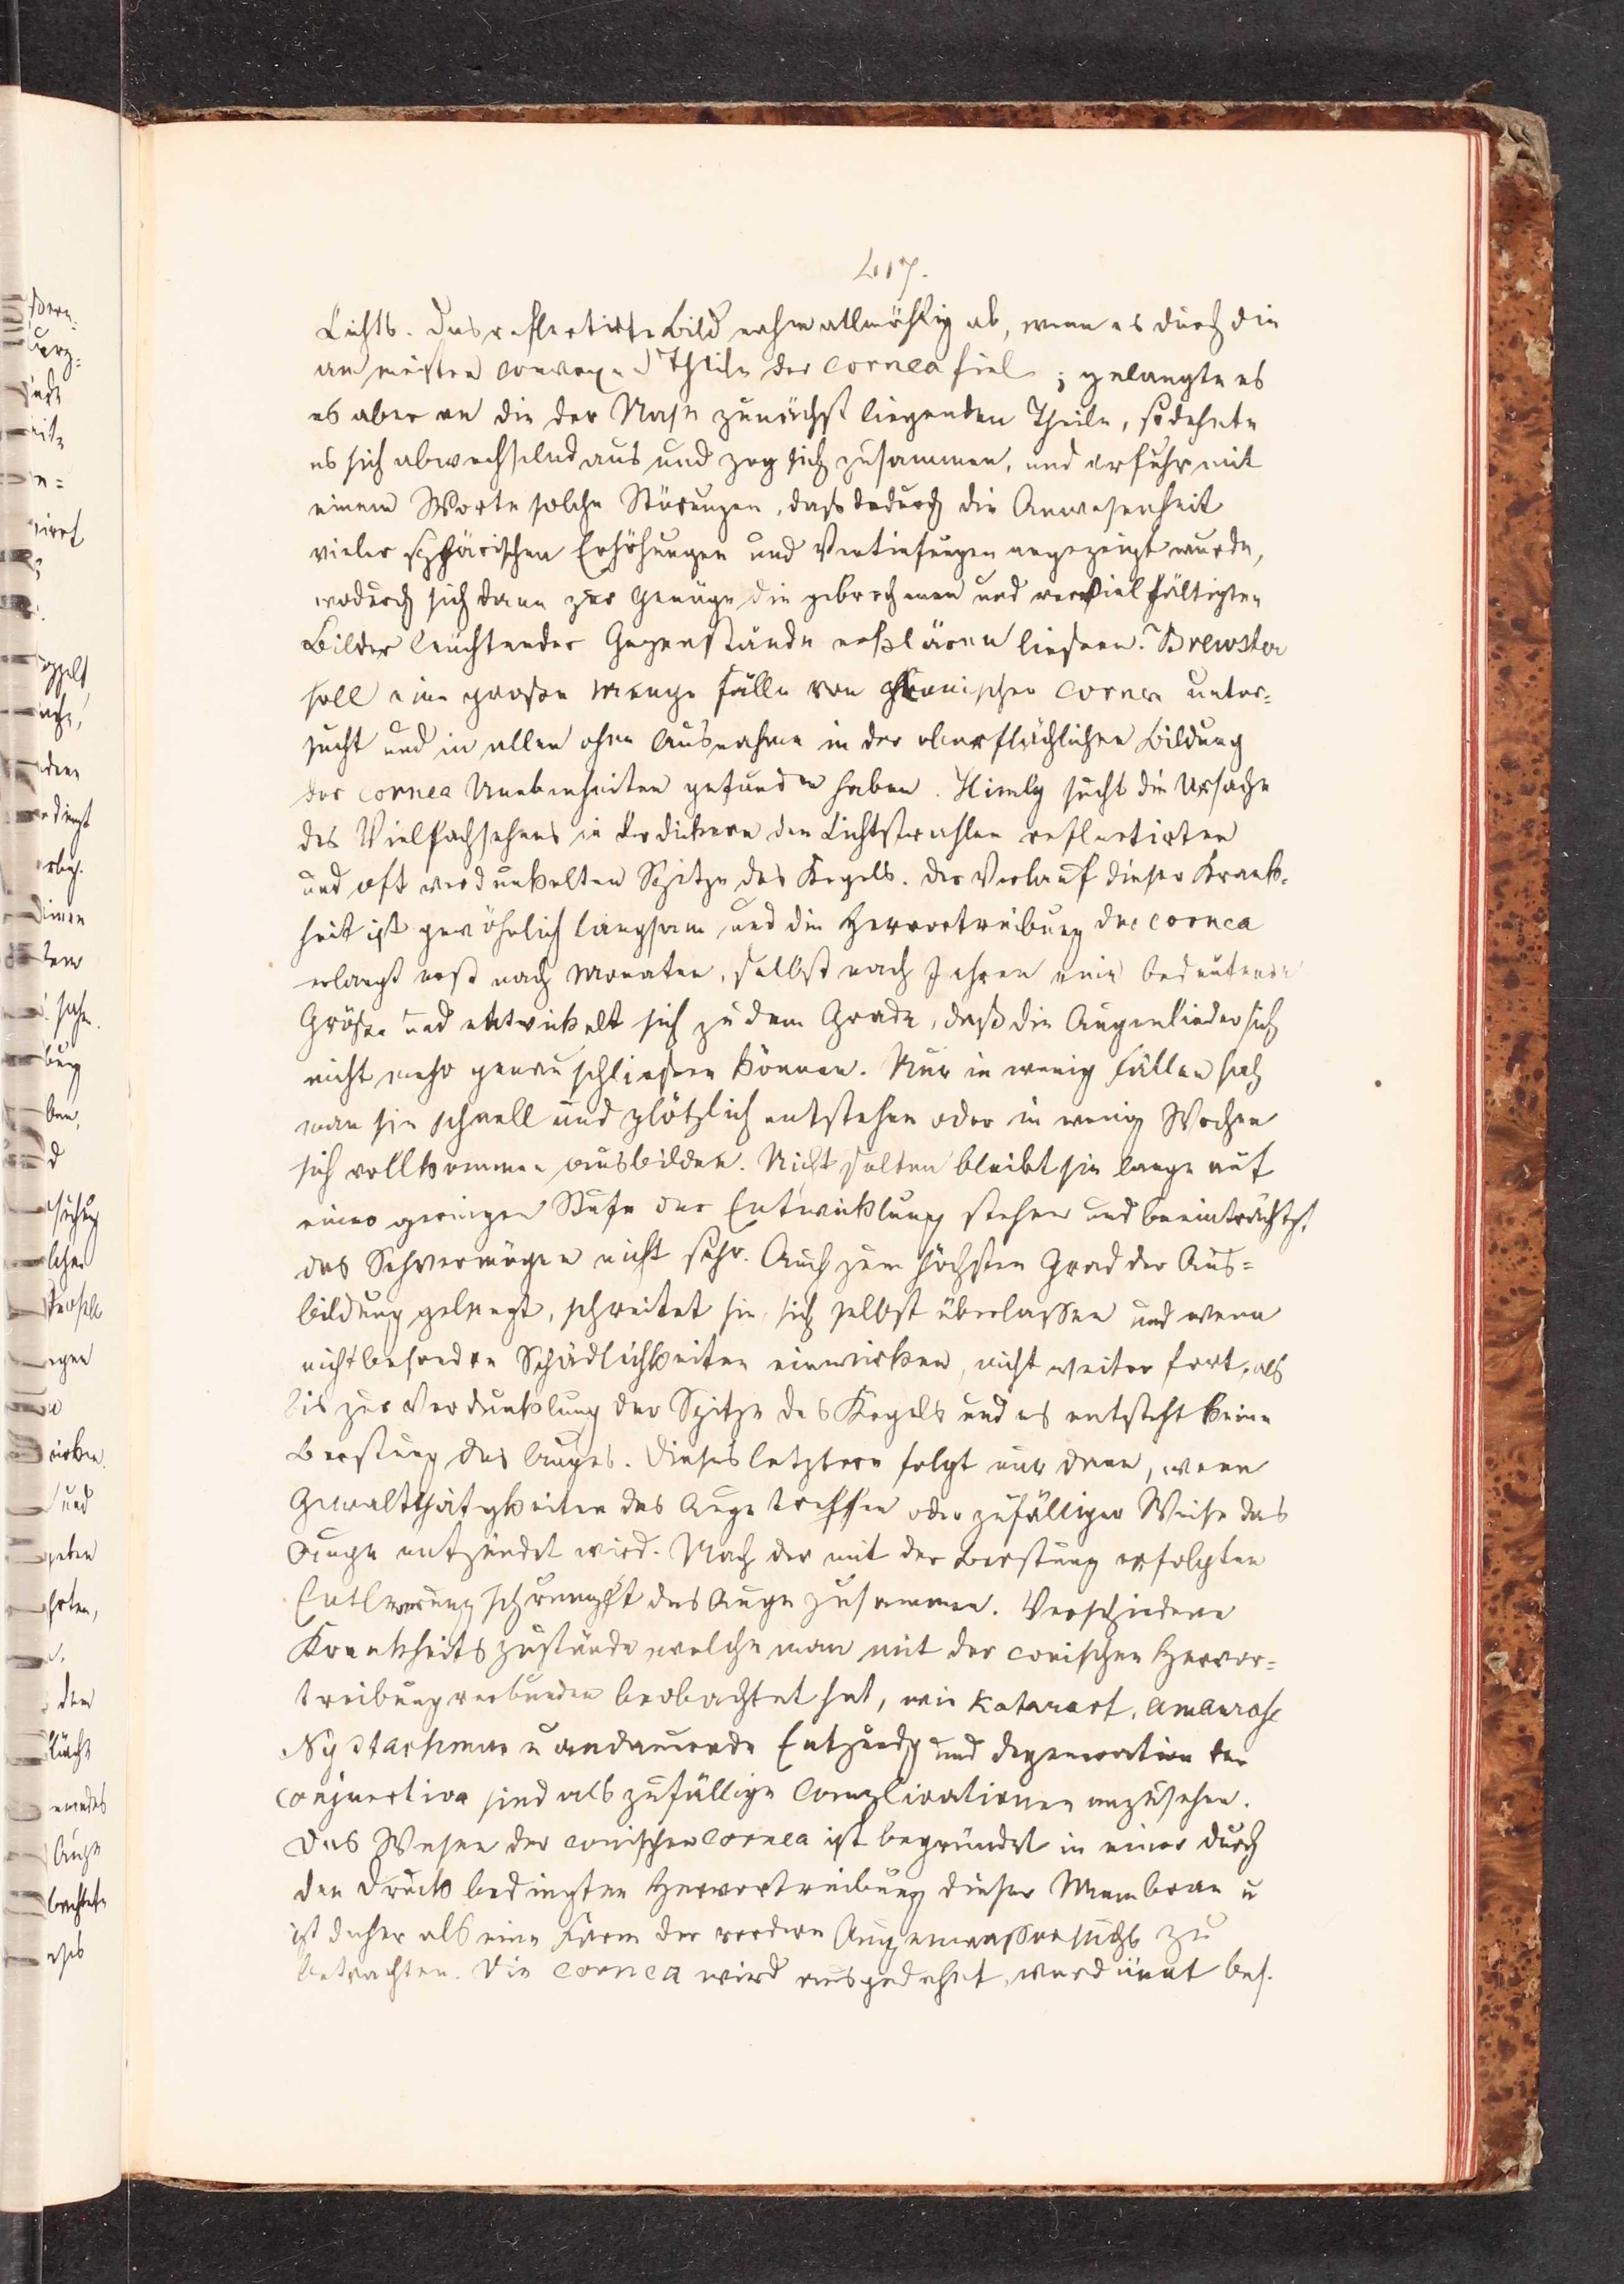 417.
Lichts. Das reflectirte Bild nahm allmählig ab, wenn es durch die
am meisten convexen Theile der Cornea fiel; gelangte es
es aber an die der Nase zunächst liegenden Theile, so dehnte
es sich abwechselnd aus und zog sich zusammen, und erfuhr mit
einem Worte solche Störungen, dass dadurch die Anwesenheit
vieler sphärischen Erhöhungen und Vertiefungen angezeigt wurde,
wodurch sich dann zur Genüge die gebrochenen und vervielfältigten
Bilder leuchtender Gegenstände erklären liessen. Brewster
soll eine grosse Menge Fälle von conischer Cornea unter-
sucht und in allen ohne Ausnahme in der oberflächlichen Bildung
der Cornea Unebenheiten gefunden haben. Himly sucht die Ursache
des Vielfachsehens in der dickern den Lichtstrahlen reflectirten
und oft verdunkelten Spitze des Kegels. Der Verlauf dieser Krank-
heit ist gewöhnlich langsam und die Hervortreibung der Cornea
erlangt erst nach Monaten, selbst nach Jahren eine bedeutende
Größe und entwickelt sich zu dem Grade, daß die Augenlieder sich
nicht mehr genau schliessen können. Nur in wenig Fällen sah
man sie schnell und plötzlich entstehen oder in wenig Wochen
sich vollkommen ausbilden. Nicht selten bleibt sie lange auf
einer geringen Stufe der Entwicklung stehen und beeinträchtgt.
das Sehvermögen nicht sehr. Auch zum höchsten Grad der Aus-
bildung gelangt, schreitet sie, sich selbst überlassen und wenn
nicht besondre Schädlichkeiten einwirken, nicht weiter fort, als
bis zur Verdunklung der Spitze des Kegels und es entsteht keine
Berstung des Auges. Dieses letztere folgt nur dann, wenn
Gewaltthätigkeiten das Auge treffen oder zufälliger Weise das
Auge entzündet wird. Nach der mit der Berstung erfolgten
Entleerung schrumpft das Auge zusammen. Verschiedene
Krankheitszustände welche man mit der conischen Hervor-
treibung verbunden beobachtet hat, wie Kataract, Amaurose
Nystachmus u andauernde Entzündg und Degeneration der
conjunctiva sind als zufällige Complicationen anzusehen.
Das Wesen der conischen Cornea ist begründet in einer durch
den Druck bedingten Hervortreibung dieser Membran u
ist daher als eine Form der vordern Augenwassersucht zu
betrachten. Die Cornea wird ausgedehnt, verdünnt bes.